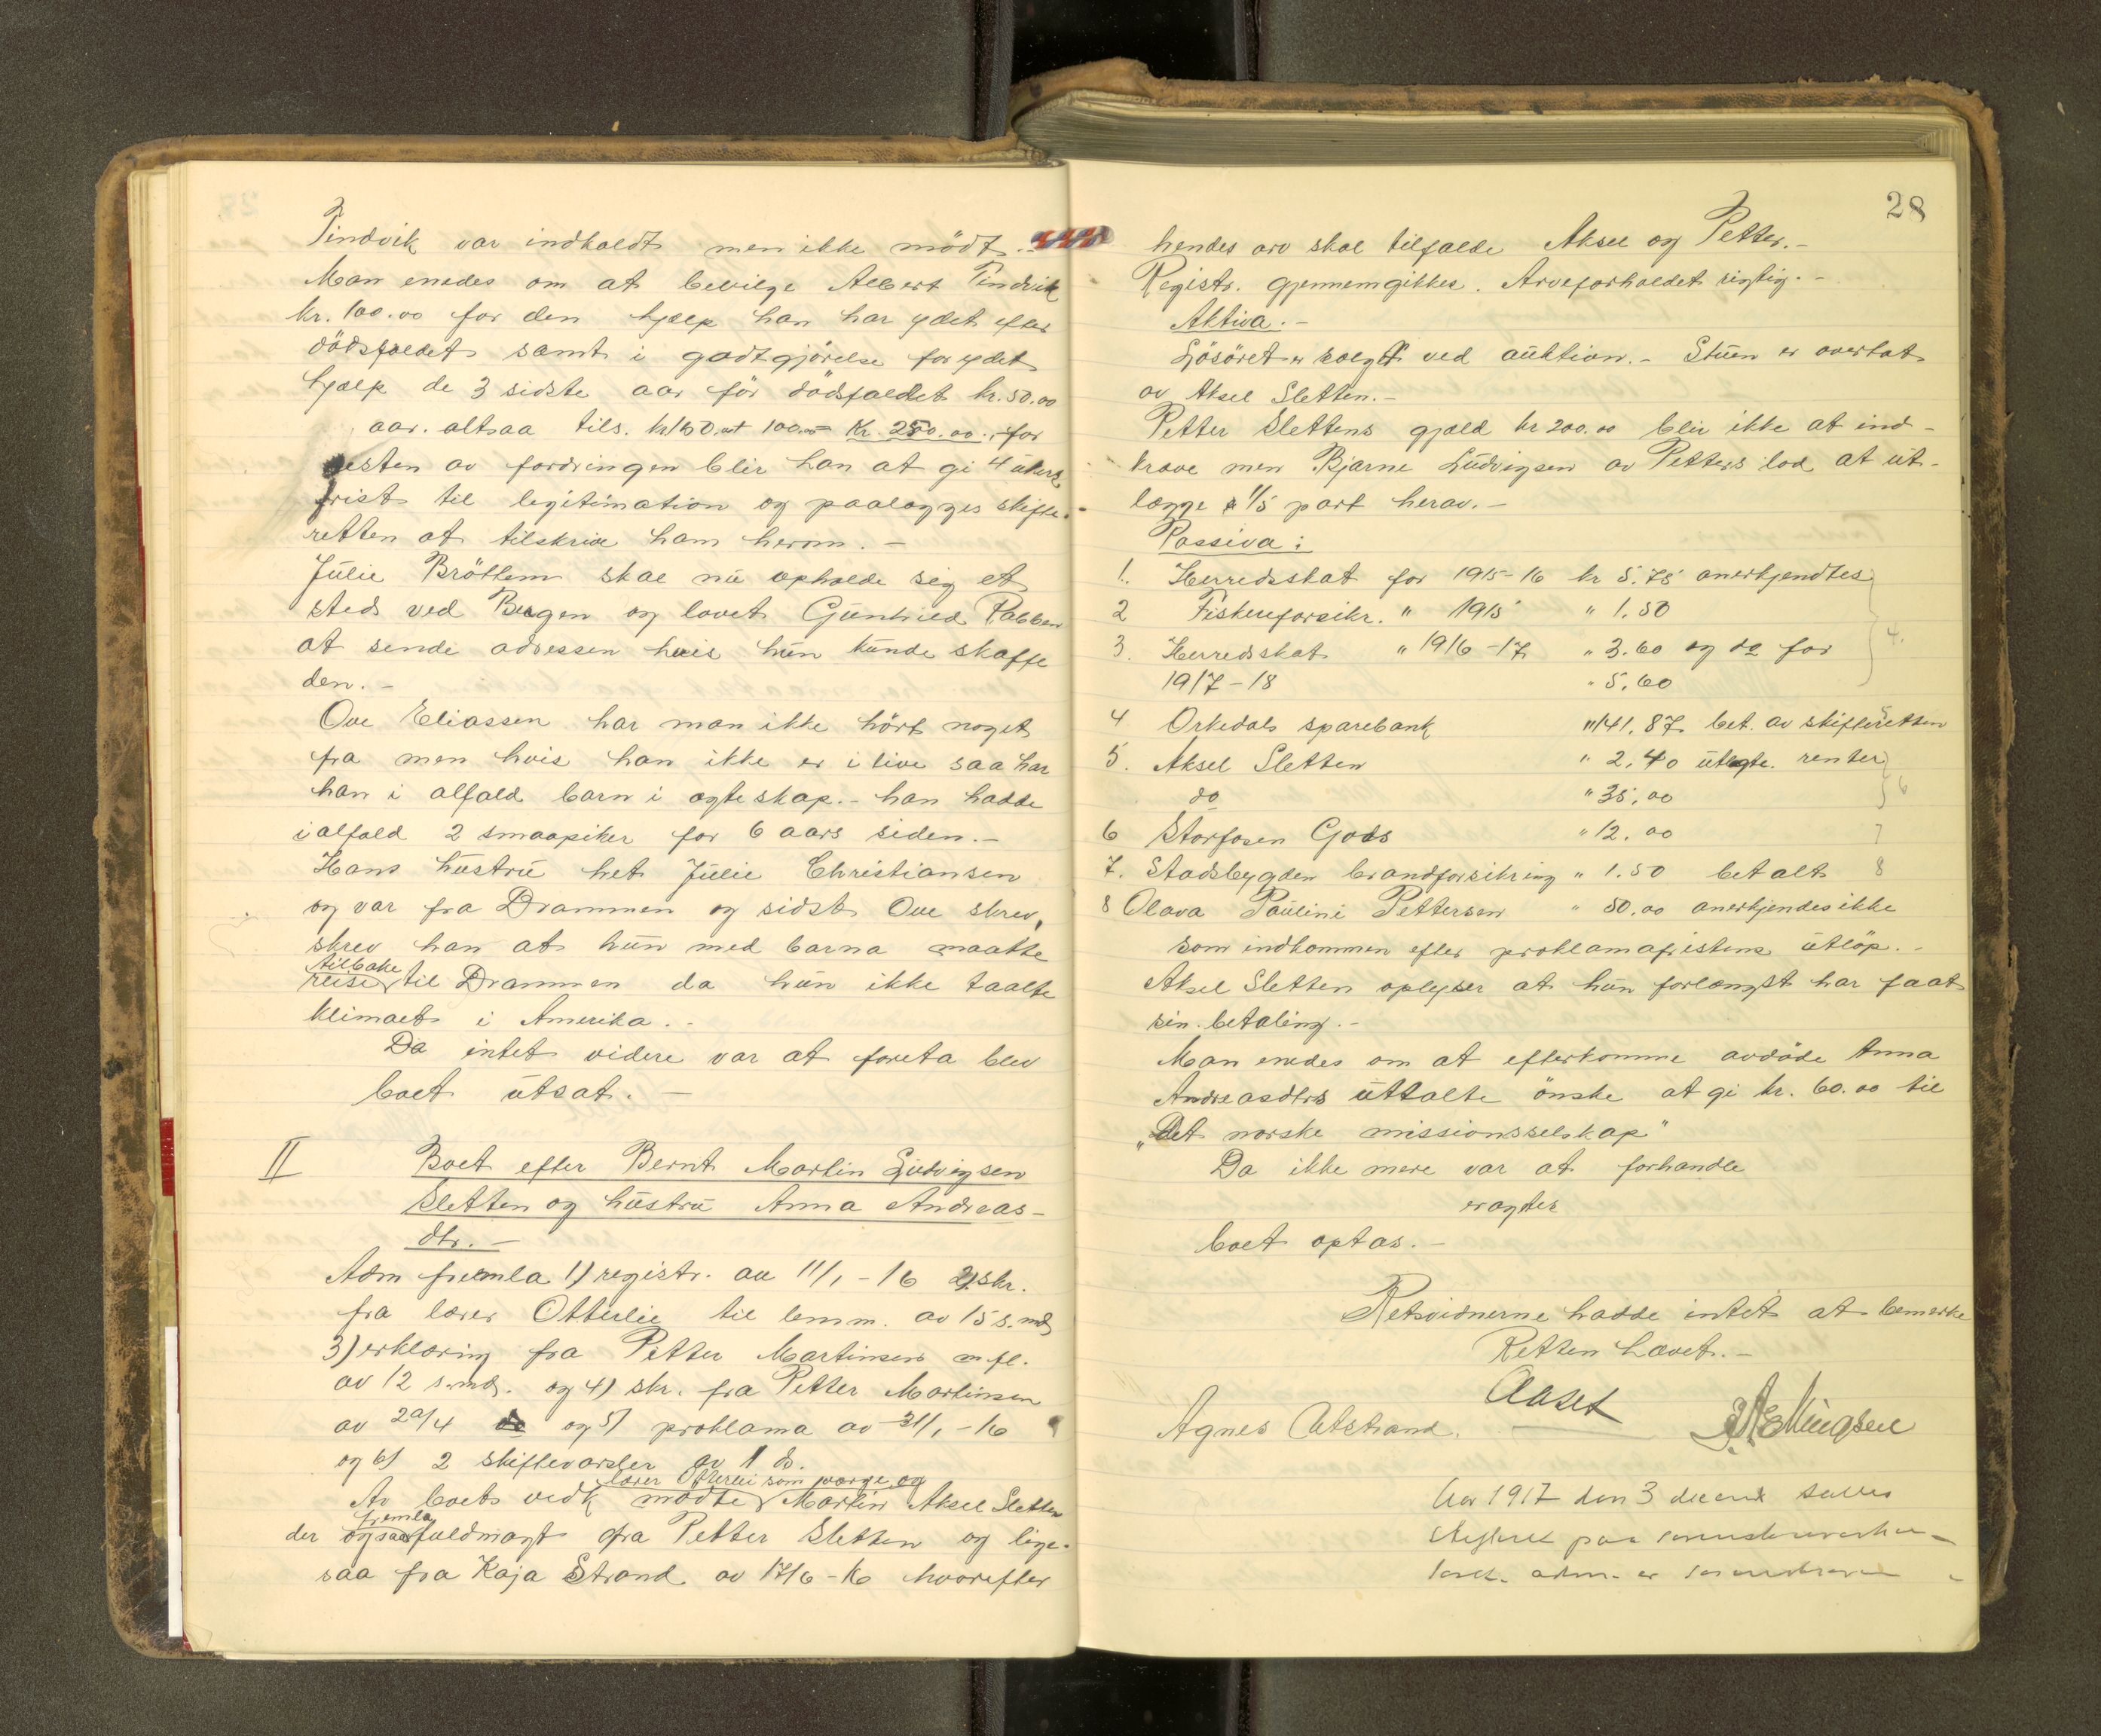 Tindvik var indkaldt men ikke mödt.-
Man enedes om at bevilge Albert Tindvik
kr. 100.00 for den hjælp han har ydet efter
dödsfaldet samt i godtgjörelse for ydet
hjælp de 3 sidste aar för dödsfaldet kr. 50.00
aar. altsaa tils. kr 150 + 100.00 = Kr. 250.00. for
resten av fordringen blir han at gi 4 ukers
frist til legitimation og paalægges skifte-
retten at tilskrive ham herom. -
Julie Bröttem skal nu opholde sig et
sted ved Bergen og lovet Gunhild Rabben
at sende adressen hvis hun kunde skaffe
den. -
Ove Eliassen har man ikke hört noget
fra men hvis han ikke er i live saa har
han i alfald barn i ægteskap.- han hadde
ialfald 2 smaapiker for 6 aars siden.-
Hans hustru het Julie Christiansen
og var fra Drammen og sidst Ove skrev,
skrev han at hun med barna maatte
tilbake
reise til Drammen da hun ikke taalte
klimaet i Amerika. -
Da intet videre var at foreta blev
boet utsat. -
II Boet efter Bernt Martin Ludvigsen
Sletten og hustru Anna Andreas-
dtr. -
Adm fremla 1) registr. av 11/1 - 16 2) skr.
fra lærer Otterlei til lensm. av 15 s. md
3) erklæring fra Petter Martinsen m fl.
av 12 s. md. og 4) skr. fra Petter Martinsen
av 20/4 og 5) proklama av 31/1 - 16
og 6) 2 skiftevarsler av 1 ds.
lærer Otterlei som værge og
Av boets vedk mödte Martin Aksel Sletten
fremla
der ogsaa fuldmagt fra Petter Sletten og lige-
saa fra Kaja Strand av 17/6 - 16 hvorefter
28
hendes arv skal tilfalde Aksel og Petter.-
Registr. gjennemgikkes. Arveforholdet rigtig. -
Aktiva. -
Lösöret er solgt ved auktion. - Stuen er overtat
av Aksel Sletten.-
Petter Slettens gjæld kr 200.00 blir ikke at ind-
kræve men Bjarne Ludvigsen av Petters lod at ut-
lægge 1/5 part herav. -
Passiva:
1. Herredsskat for 1915-16 kr 5.75 anerkjendtes
2 Fiskeforsikr. " 1915 " 1.50
3. Herredsskat " 1916-17 " 3.60 og do for 4.
1917-18 " 5.60
4 Orkedals sparebank " 141.87 bet. av skifteretten 5
5. Aksel Sletten " 2.40 utlagte renter
do " 35.00 6
6 Storfosen Gods " 12.00 7
7. Stadsbygden brandforsikring " 1.50 betalt 8
8 Olava Paulini Pettersen " 50.00 anerkjendes ikke
som indkommen efter proklamafristens utlöp. -
Aksel Sletten oplyser at hun forlængst har faat
sin betaling. -
Man enedes om at efterkomme avdöde Anna
Andreasdtrs uttalte önske at gi kr. 60.00 til
"Det norske missionsselskap"
Da ikke mere var at forhandle
eragtes
boet optas. -
Retsvidnerne hadde intet at bemerke
Retten hævet. -
Aaset
Agnes Utstrand.
Aar 1917 den 3 decemb sattes
skifteret paa
adm. er